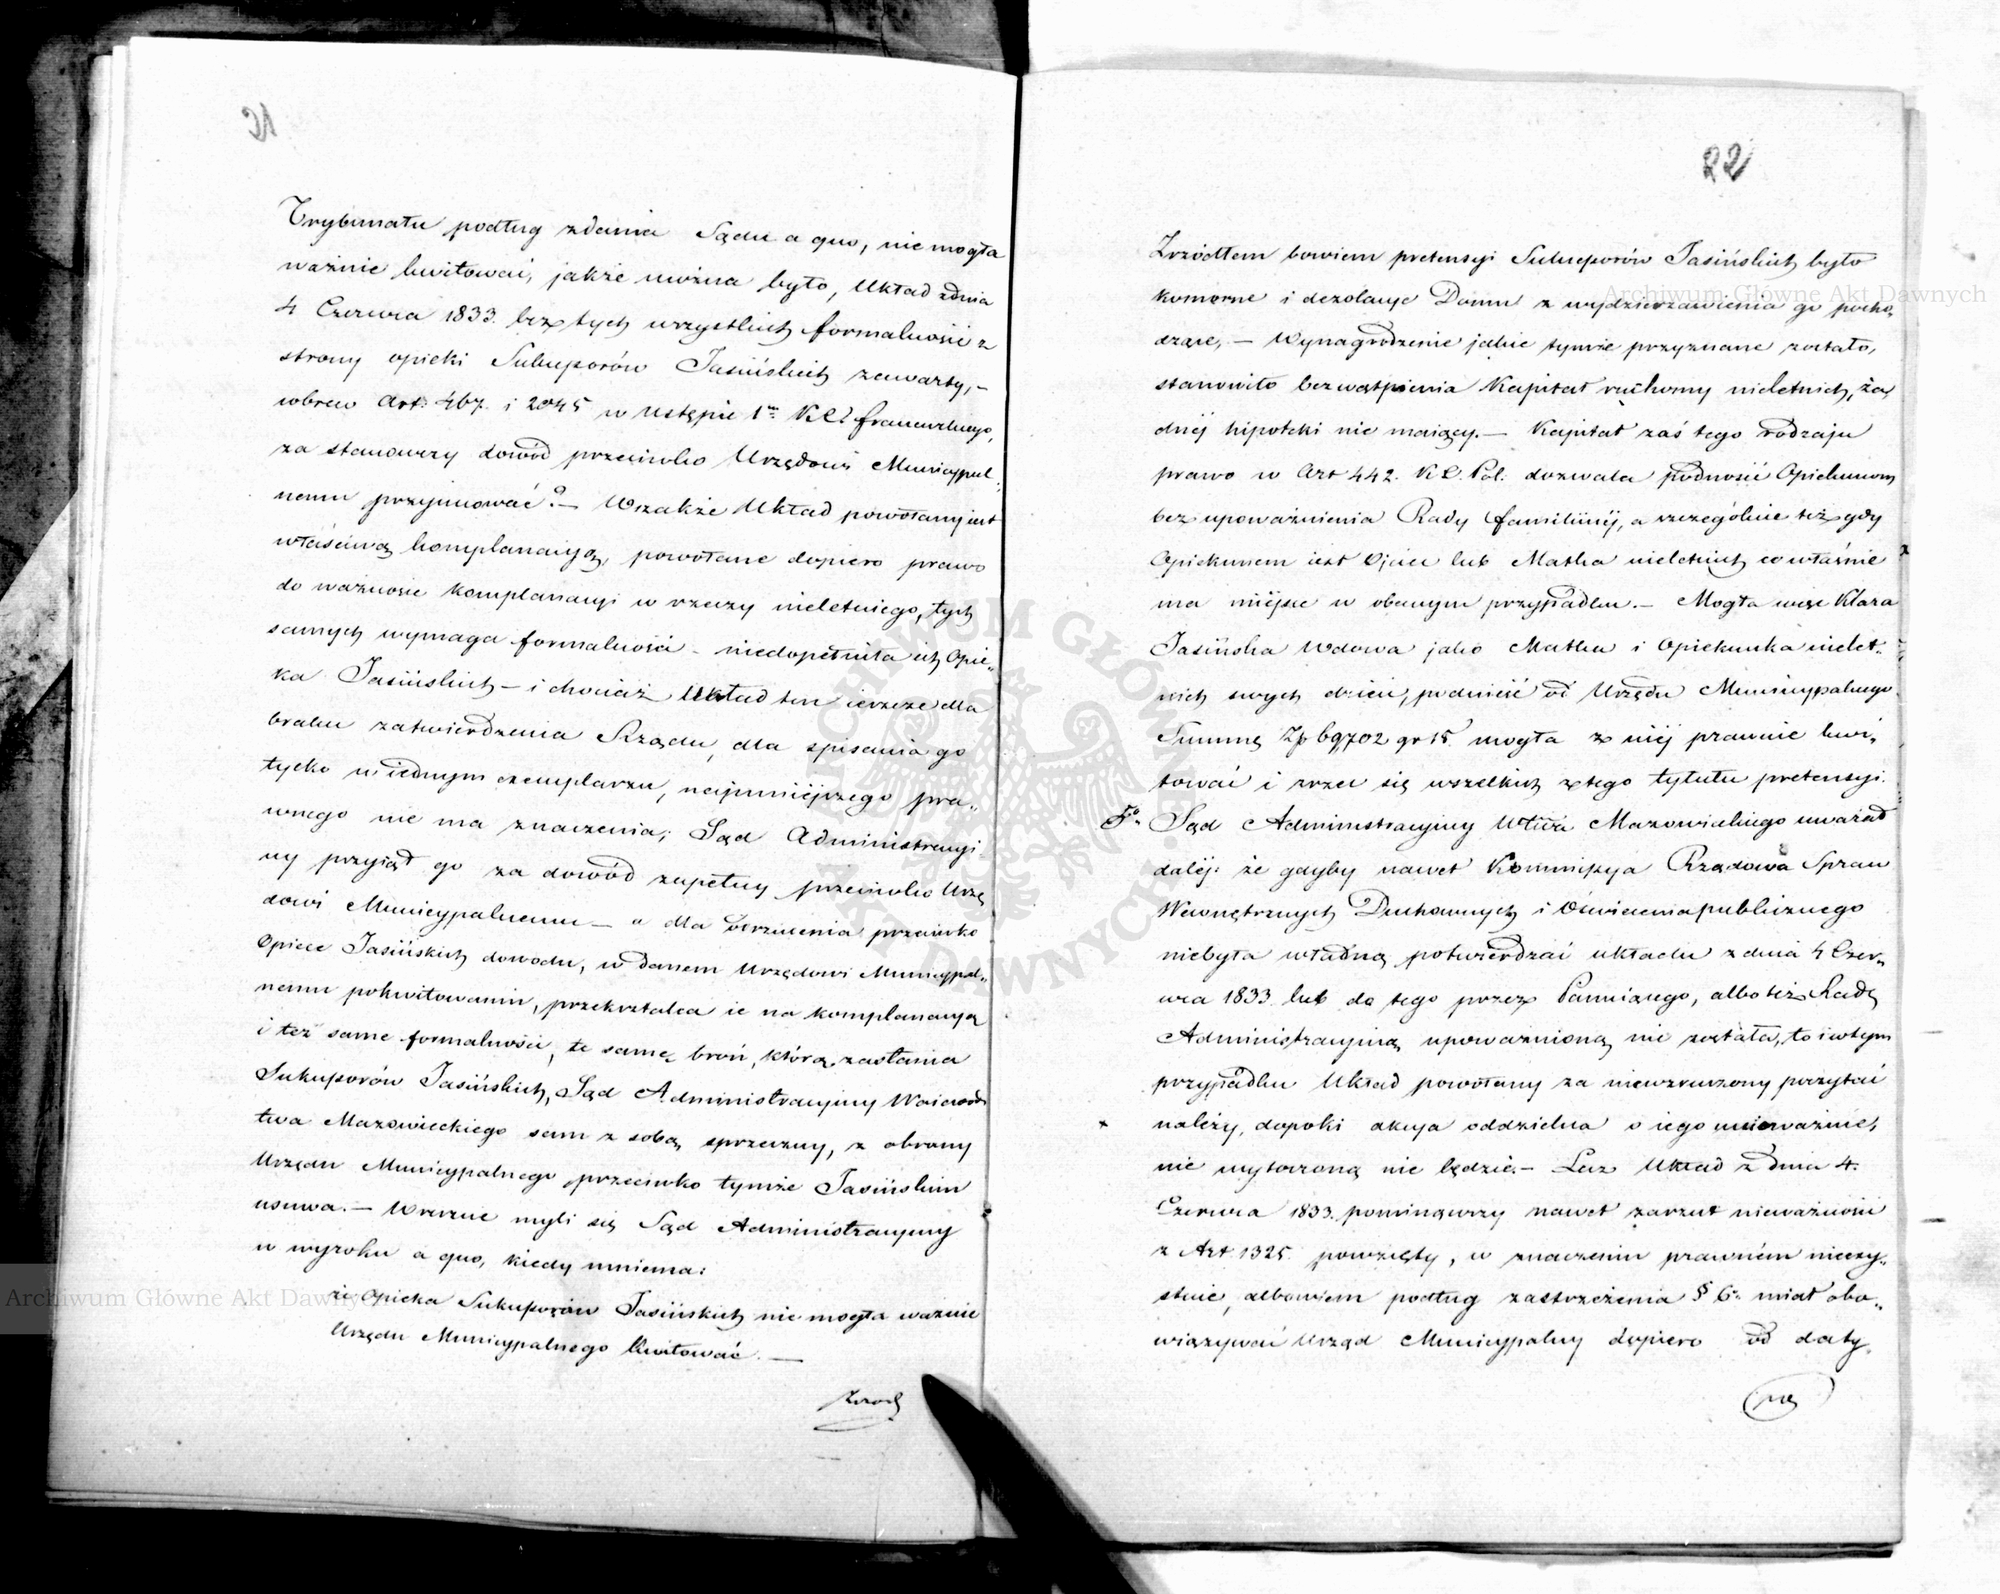 21
Trybunału podług zdania Sądu a quo, nie mogła
ważnie kwitować, jakże można było, Układ zdnia
4 Czerwca 1833. bez tych wszystkich formalności z
strony opieki Sukcessorów Jasińskich zawarty, –
wbrew Art: 467. i 2045 w Ustępie 1m K.C. francuzkiego,
za stanowczy dowód przeciwko Urzędowi Municypal-
nemu przyjmować? – Wszakże Układ powołany jest
właściwą komplanacyą, powołane dopiero prawo
do ważności komplanacyi w rzeczy nieletniego, tych
samych wymaga formalności – niedopełniła ich Opie-
ka Jasińskich – i chociaż Układ ten ieszcze dla
braku zatwierdzenia Rządu, dla spisania go
tylko w iednym exemplarzu, najmniejszego pra-
wnego nie ma znaczenia; Sąd Administracyi-
ny przyjął go za dowód zupełny przeciwko Urzę
dowi Municypalnemu – a dla odrzucenia przeciwko
Opiece Jasińskich dowodu, w danem Urzędowi Municypal-
nemu pokwitowaniu, przekształca ie na komplanacyą
i też same formalności, tę samę broń, którą zasłania
Sukcessorów Jasińskich, Sąd Administracyiny Woiewódz
twa Mazowieckiego sam z sobą sprzeczny, z obrony
Urzędu Municypalnego przeciwko tymże Jasińskim
usuwa. – Wreszcie myli się Sąd Administracyiny
w wyroku a quo, kiedy mniema:
że Opieka Sukcessorów Jasińskich nie mogła ważnie
Urzędu Municypalnego kwitować. —
Zrzód
22
Zrzódłem bowiem pretensyi Sukcessorów Jasińskich było
komorne i dezolacye Domu z wydzierżawienia go pocho-
dzące, – Wynagrodzenie jakie tymże przyznane zostało,
stanowiło bezwątpienia Kapitał ruchomy nieletnich, ża-
dnéj hipoteki nie maiący. – Kapitał zaś tego rodzaju
prawo w Art 442. K.C. Pol: dozwala podnosić Opiekunom
bez upoważnienia Rady familiinéj, a szczególnie też gdy
Opiekunem iest Ojciec lub Matka nieletnich, co właśnie
ma miejsce w obecnym przypadku. – Mogła więc Klara
Jasińska Wdowa jako Matka i Opiekunka nielet-
nich swych dzieci, podnieść od Urzędu Municypalnego
Summę Zp 69702 gr 15. mogła z niéj prawnie kwi-
tować i zrzec się wszelkich z tego tytułu pretensyi.
5o Sąd Administracyiny Wtwa Mazowieckiego uważał
daléj: że gdyby nawet Kommissya Rządowa Spraw
Wewnętrznych Duchownych i Oświecenia publicznego
niebyła władną potwierdzać układu z dnia 4 Czer-
wca 1833 lub do tego przez Panuiącego, albo też Radę
Administracyiną upoważnioną nie została, to i wtym
przypadku Układ powołany za niewzruszony poczytać
należy, dopóki akcya oddzielna o iego unieważnie-
nie wytoczoną nie będzie. – Lecz Układ z dnia 4.
Czerwca 1833. pominąwszy nawet zarzut nieważności
z Art 1325. powzięty, w znaczeniu prawném nieczy-
stnie, albowiem podług zastrzeżenia § 6o miał obo-
wiązywać Urząd Municypalny dopiero od daty